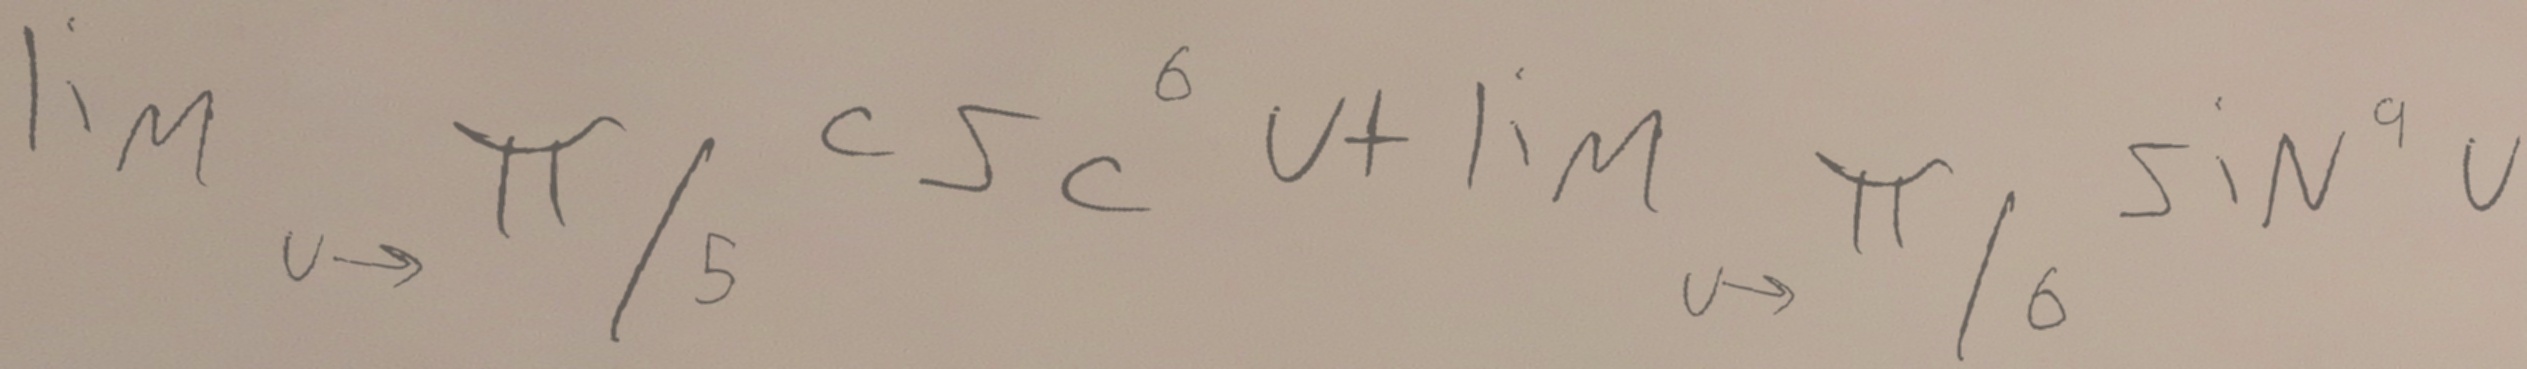 lim_{v→π/5} csc^6 v + lim_{v→π/6} sin^9 v